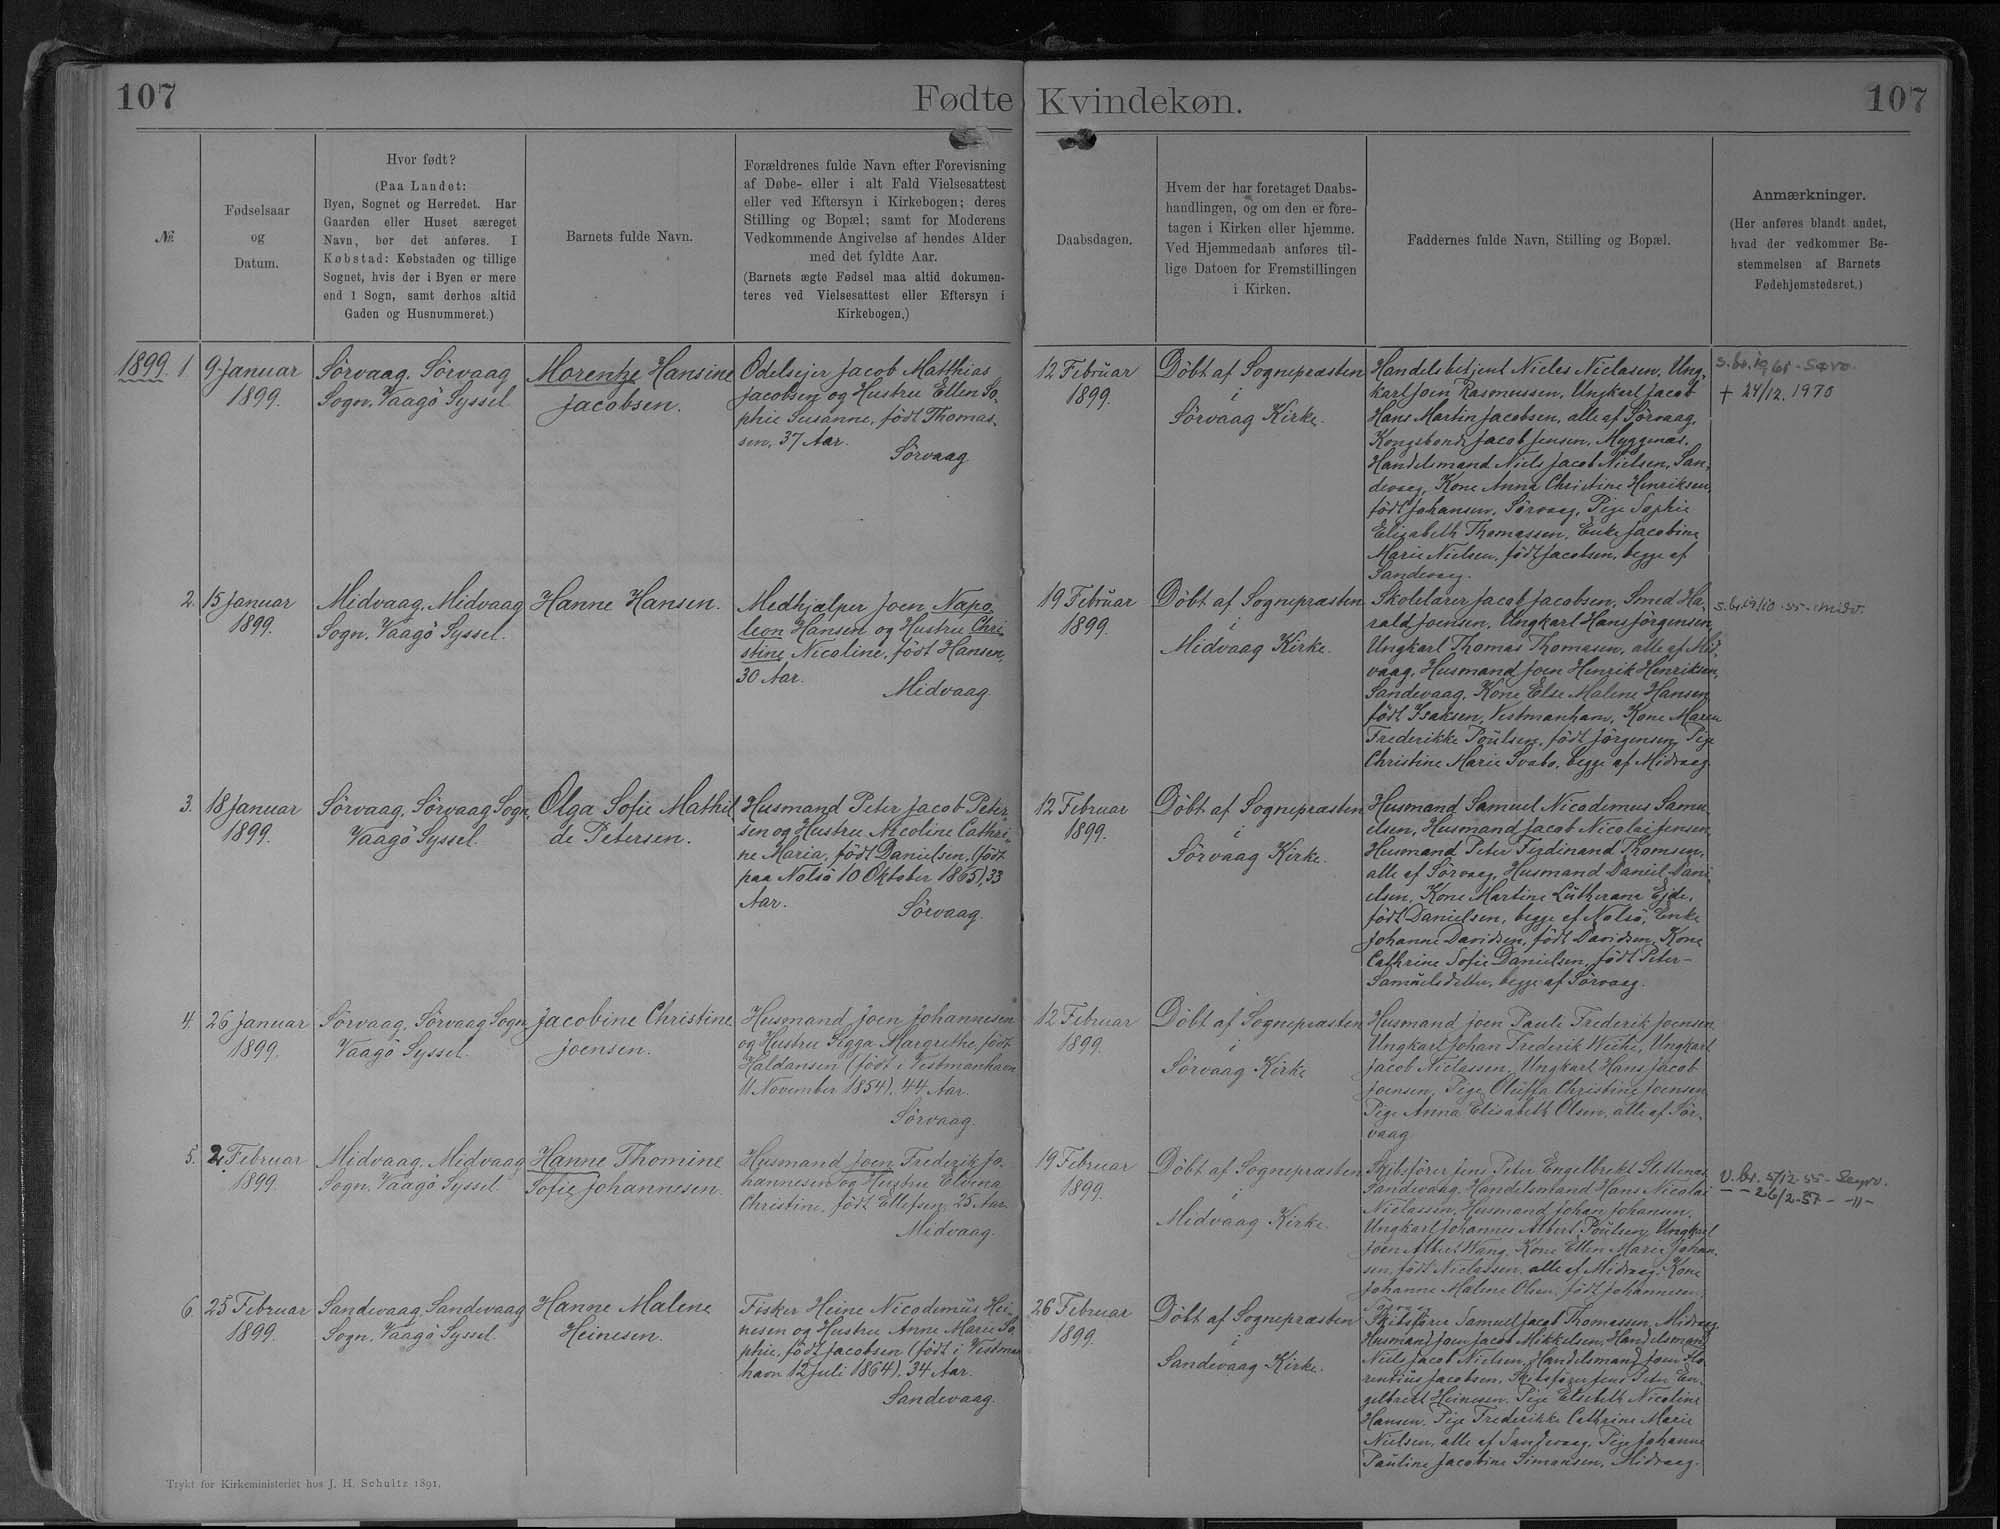 107
Fødte
Kvindekøn.
107
№.
Fødselsaar
og
Datum.
Hvor født?
(Paa Landet:
Byen, Sognet og Herredet. Har
Gaarden eller Huset særeget
Navn, bør det anføres. I
Købstad: Købstaden og tillige
Sognet, hvis der i Byen er mere
end 1 Sogn, samt derhos altid
Gaden og Husnummeret.)
Barnets fulde Navn.
Forældrenes fulde Navn efter Forevisning
af Døbe- eller i alt Fald Vielsesattest
eller ved Eftersyn i Kirkebogen; deres
Stilling og Bopæl; samt for Moderens
Vedkommende Angivelse af hendes Alder
med det fyldte Aar.
(Barnets ægte Fødsel maa altid dokumen-
teres ved Vielsesattest eller Eftersyn i
Kirkebogen.)
Daabsdagen.
Hvem der har foretaget Daabs-
handlingen, og om den er fore-
tagen i Kirken eller hjemme.
Ved Hjemmedaab anføres til-
lige Datoen for Fremstillingen
i Kirken.
Faddernes fulde Navn, Stilling og Bopæl.
Anmærkninger.
(Her anføres blandt andet,
hvad der vedkommer Be-
stemmelsen af Barnets
Fødehjemstedsret.)
1899. 1
9 Januar
1899.
Sörvaag, Sörvaag
Sogn, Vaagö Syssel
Morentje Hansine
Jacobsen.
Odelsejer Jacob Matthias
Jacobsen og Hustru Ellen So-
phie Susanne, född Thomas-
sen, 37 Aar.
Sörvaag
12 Februar
1899.
Döbt af Sognepræsten
i
Sörvaag Kirke.
Handelsbetjent Nicles Niclasen, Ung-
karl Joen Rasmussen, Ungkarl Jacob
Hans Martin Jacobsen, alle af Sörvaag,
Kongsbonde Jacob Jensen, Myggenæs,
Handelsmand Niels Jacob Nielsen, San-
devaag, Kone Anna Christine Henriksen,
född Johansen, Sörvaag, Pige Sophie
Elisabeth Thomassen, Enke Jacobine
Marie Nielsen, född Jacobsen, begge af
Sandevaag.
+ 24/12. 1970
2.
15 Januar
1899.
Midvaag, Midvaag
Sogn, Vaagö Syssel.
Hanne Hansen.
Medhjælper Joen Napo-
leon Hansen og Hustru Chri-
stine Nicoline, född Hansen,
30 Aar.
Midvaag
19 Februar
1899.
Döbt af Sognepræsten
i
Midvaag Kirke.
Skolelærer Jacob Jacobsen, Smed Ha-
rald Joensen, Ungkarl Hans Jörgensen,
Ungkarl Thomas Thomasen, alle af Mid-
vaag, Husmand Joen Henrik Henriksen,
Sandevaag, Kone Else Malene Hansen
född Isaksen, Vestmanhavn, Kone Maren
Frederikke Poulsen, född Jörgensen, Pige
Christine Marie Svabo, begge af Midvaag.
3.
18 Januar
1899.
Sörvaag, Sörvaag Sogn,
Vaagö Syssel.
Olga Sofie Mathil
de Petersen.
Husmand Peter Jacob Peter-
sen og Hustru Nicoline Cathri-
ne Maria, född Danielsen, (född
paa Nolsö 10 Oktober 1865), 33
Aar.
Sörvaag.
12 Februar
1899.
Döbt af Sognepræsten
i
Sörvaag Kirke.
Husmand Samuel Nicodemus Samu-
elsen, Husmand Jacob Nicolai Jensen,
Husmand Peter Ferdinand Thomsen,
alle af Sörvaag, Husmand Daniel Dani-
elsen, Kone Martine Lutherane Ejde,
född Danielsen, begge af Nolsö, Enke
Johanne Davidsen, född Davidsen, Kone
Cathrine Sofie Danielsen, född Peter-
Samuelsdatter, begge af Sörvaag.
4.
26 Januar
1899.
Sörvaag, Sörvaag Sogn
Vaagö Syssel.
Jacobine Christine
Joensen.
Husmand Joen Johannesen
og Hustru Sigga Margrethe, född
Haldansen (född i Vestmanhavn
11 November 1854), 44 Aar.
Sörvaag.
12 Februar
1899.
Döbt af Sognepræsten
i
Sörvaag Kirke
Husmand Joen Pauli Frederik Joensen,
Ungkarl Johan Frederik Weihe, Ungkarl
Jacob Niclassen, Ungkarl Hans Jacob
Joensen, Pige Oluffa Christine Joensen,
Pige Anna Elisabeth Olsen, alle af Sör-
vaag.
5.
2 Februar
1899.
Midvaag, Midvaag
Sogn, Vaagö Syssel.
Hanne Thomine
Sofie Johannesen.
Husmand Joen Frederik Jo-
hannesen og Hustru Elvina
Christine, född Ellefsen, 25 Aar.
Midvaag.
19 Februar
1899.
Döbt af Sognepræsten
i
Midvaag Kirke.
Skibsförer Jens Peter Engelbrekt Slettenæs
Sandevaag, Handelsmand Hans Nicolai
Niclassen, Husmand Johan Johansen,
Ungkarl Johannes Albert Poulsen, Ungkarl
Joen Albert Wang, Kone Ellen Marie Johan-
sen, född Niclassen, alle af Midvaag, Kone
Johanne Malene Olsen, född Johannesen,
6.
25 Februar
1899.
Sandevaag, Sandevaag
Sogn, Vaagö Syssel.
Hanne Malene
Heinesen.
Fisker Heine Nicodemus Hei-
nesen og Hustru Anne Marie So-
phie, född Jacobsen (född i Vestman-
havn 12 Juli 1864), 34 Aar.
Sandevaag.
26 Februar
1899.
Döbt af Sognepræsten
i
Sandevaag Kirke.
Skibsförer Samuel Jacob Thomassen, Midvaag,
Husmand Joen Jacob Mikkelsen, Handelsmand
Niels Jacob Nielsen, Handelsmand Joen Flo-
rentius Jacobsen, Skibsförer Jens Peter En-
gelbrekt Heinesen, Pige Elsebeth Nicoline
Hansen, Pige Frederikke Cathrine Marie
Nielsen, alle af Sandevaag, Pige Johanne
Pauline Jacobine Simonsen, Midvaag.
Trykt for Kirkeministeriet hos J. H. Schultz 1891.